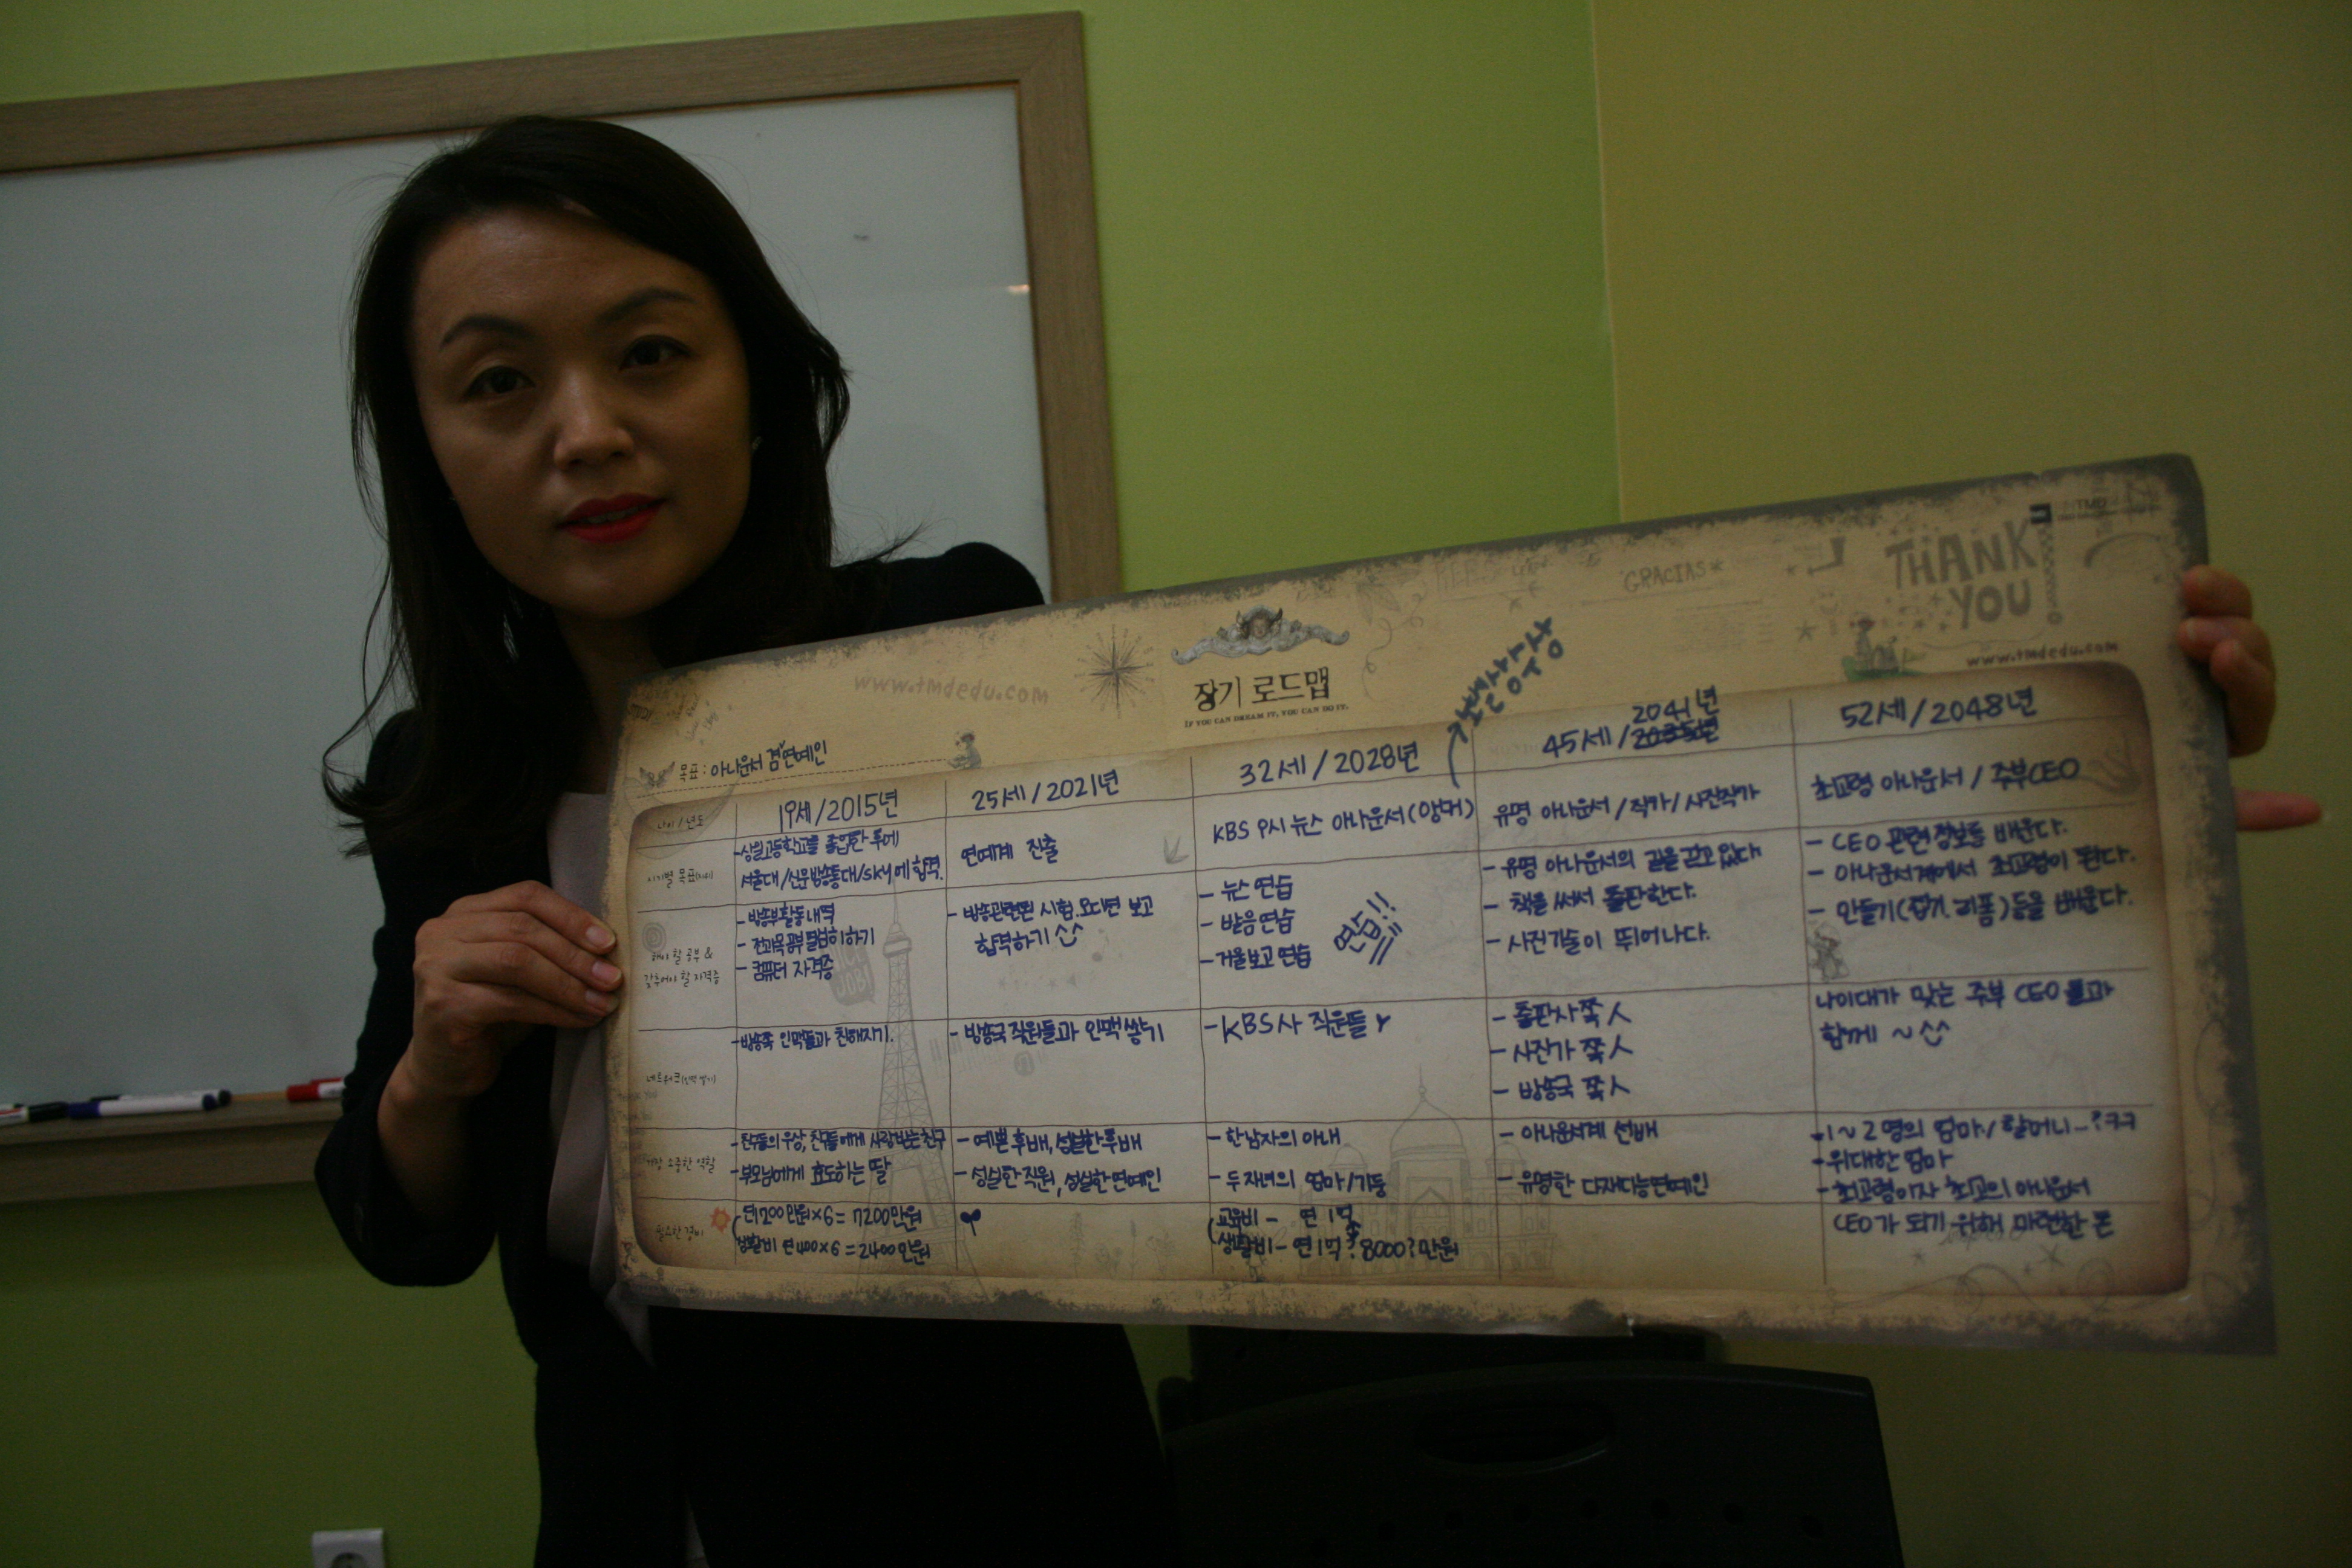 THANK
YOU
GRACIAS*
www.tmdedu.com
www.tmdedu.com
장기 로드맵
IF YOU CAN DREAM IT, YOU CAN DO IT.
목표 : 아나운서 겸 연예인
나이 / 년도
19세/2015년
25세/2021년
32세/2028년
45세/2041년
52세/2048년
시기별 목표
-상일고등학교를 졸업한 후에
서울대/신문방송통대/SKY에 합격.
연예계 진출
KBS 9시 뉴스 아나운서(앵커)
유명 아나운서 /작가/ 사진작가
초고령 아나운서 / 주부CEO
해야 할 공부 &
갖추어야 할 자격증
-방송부활동내역
- 전과목공부열심히하기
-컴퓨터 자격증
- 방송관련된 시험 보고
합격하기 ^^
- 뉴스 연습
- 발음연습
-거울보고 연습
연습!!
- 유명 아나운서의 길을 걷고 있다.
- 책을 써서 출판한다.
- 사진기술이 뛰어나다.
- CEO 관련정보를 배운다.
- 아나운서계에서 초고령이 된다.
- 만들기(접기, 리폼)등을 배운다.
네트워크
-방송쪽 인맥들과 친해지기.
- 방송국 직원들과 인맥쌓기
-KBS사 직원들
- 출판사쪽人
- 사진가 쪽人
- 방송국 쪽人
나이대가 맞는 주부 CEO 들과
함께 ~ ^^
가장 소중한 역할
-친구들의 우상, 친구들에게 사랑받는친구
-부모님에게 효도하는 딸
- 예쁜후배, 성실한후배
- 성실한 직원, 성실한연예인
-한남자의 아내
-두자녀의 엄마/기둥
- 아나운서계 선배
- 유명한 다재다능연예인
-1~2명의 엄마/ 할머니-?ㅋㅋ
-위대한 엄마
-최고령이자 최고의 아나운서
필요한 경비
연1200만원×6=7200만원
생활비 연400×6=2400만원
교육비 - 연 1억
생활비-연1억? 8000?만원
CEO가 되기 위해 마련한 돈